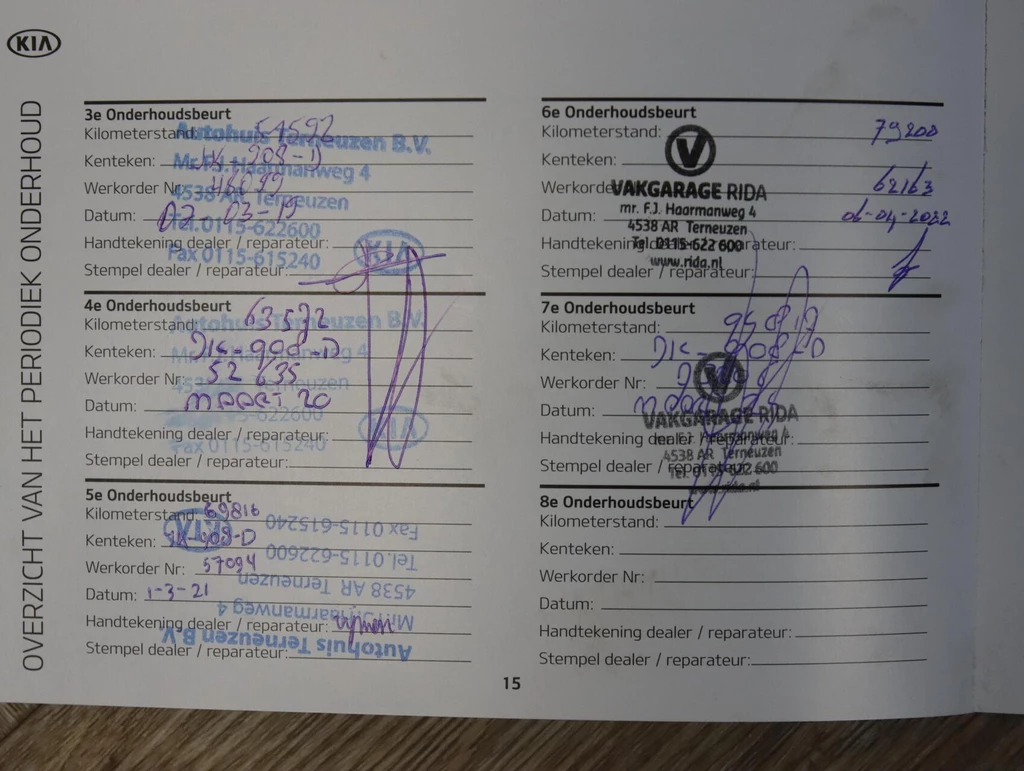 KIA
OVERZICHT VAN HET PERIODIEK ONDERHOUD
3e Onderhoudsbeurt
Kilometerstand: 54592
Kenteken: JK-908-D
Werkorder Nr: 48099
Datum: 07-03-19
Handtekening dealer / reparateur:
Stempel dealer / reparateur:
Autohuis Terneuzen B.V.
Mr. F.J. Haarmanweg 4
4538 AR Terneuzen
Tel. 0115-622600
Fax 0115-615240
KIA
4e Onderhoudsbeurt
Kilometerstand: 63572
Kenteken: JK-908-D
Werkorder Nr: 52635
Datum: MAART 20
Handtekening dealer / reparateur:
Stempel dealer / reparateur:
Autohuis Terneuzen B.V.
Mr. F.J. Haarmanweg 4
4538 AR Terneuzen
Tel. 0115-622600
Fax 0115-615240
KIA
5e Onderhoudsbeurt
Kilometerstand: 69816
Kenteken: JK-908-D
Werkorder Nr: 57094
Datum: 1-3-21
Handtekening dealer / reparateur:
Stempel dealer / reparateur:
Autohuis Terneuzen B.V.
Mr. F.J. Haarmanweg 4
4538 AR Terneuzen
Tel. 0115-622600
Fax 0115-615240
KIA
6e Onderhoudsbeurt
Kilometerstand: 79200
Kenteken:
Werkorder Nr: 62163
Datum: 06-04-2022
Handtekening dealer / reparateur:
Stempel dealer / reparateur:
V
VAKGARAGE RIDA
mr. F.J. Haarmanweg 4
4538 AR Terneuzen
Tel. 0115-622 600
www.rida.nl
7e Onderhoudsbeurt
Kilometerstand:
Kenteken: JK-908-D
Werkorder Nr:
Datum:
Handtekening dealer / reparateur:
Stempel dealer / reparateur:
V
VAKGARAGE RIDA
mr. F.J. Haarmanweg 4
4538 AR Terneuzen
Tel. 0115-622 600
www.rida.nl
8e Onderhoudsbeurt
Kilometerstand:
Kenteken:
Werkorder Nr:
Datum:
Handtekening dealer / reparateur:
Stempel dealer / reparateur:
15